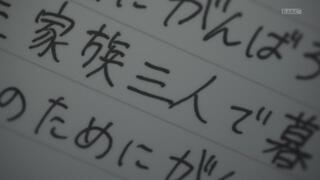 にがんばろ
家族三人で暮
のためにがん